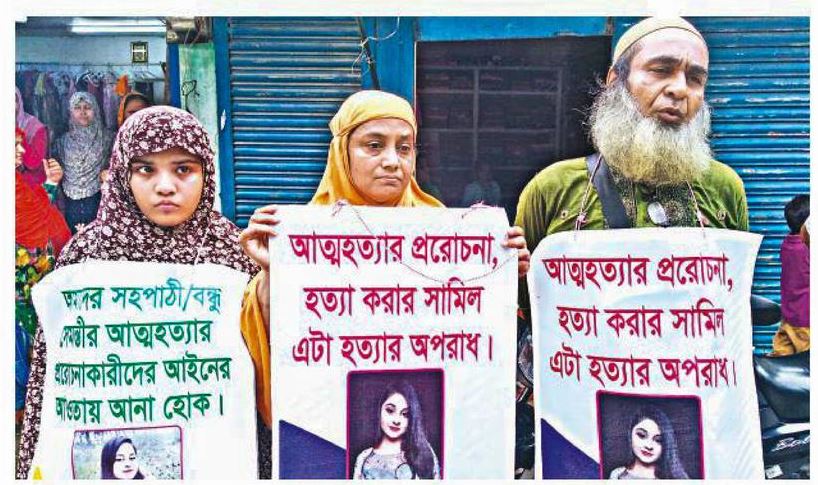 আমাদের সহপাঠী/বন্ধু
আত্মহত্যার
প্ররোচনাকারীদের আইনের
আওতায় আনা হোক।
আত্মহত্যার প্ররোচনা,
হত্যা করার সামিল
এটা হত্যার অপরাধ।
আত্মহত্যার প্ররোচনা,
হত্যা করার সামিল
এটা হত্যার অপরাধ।